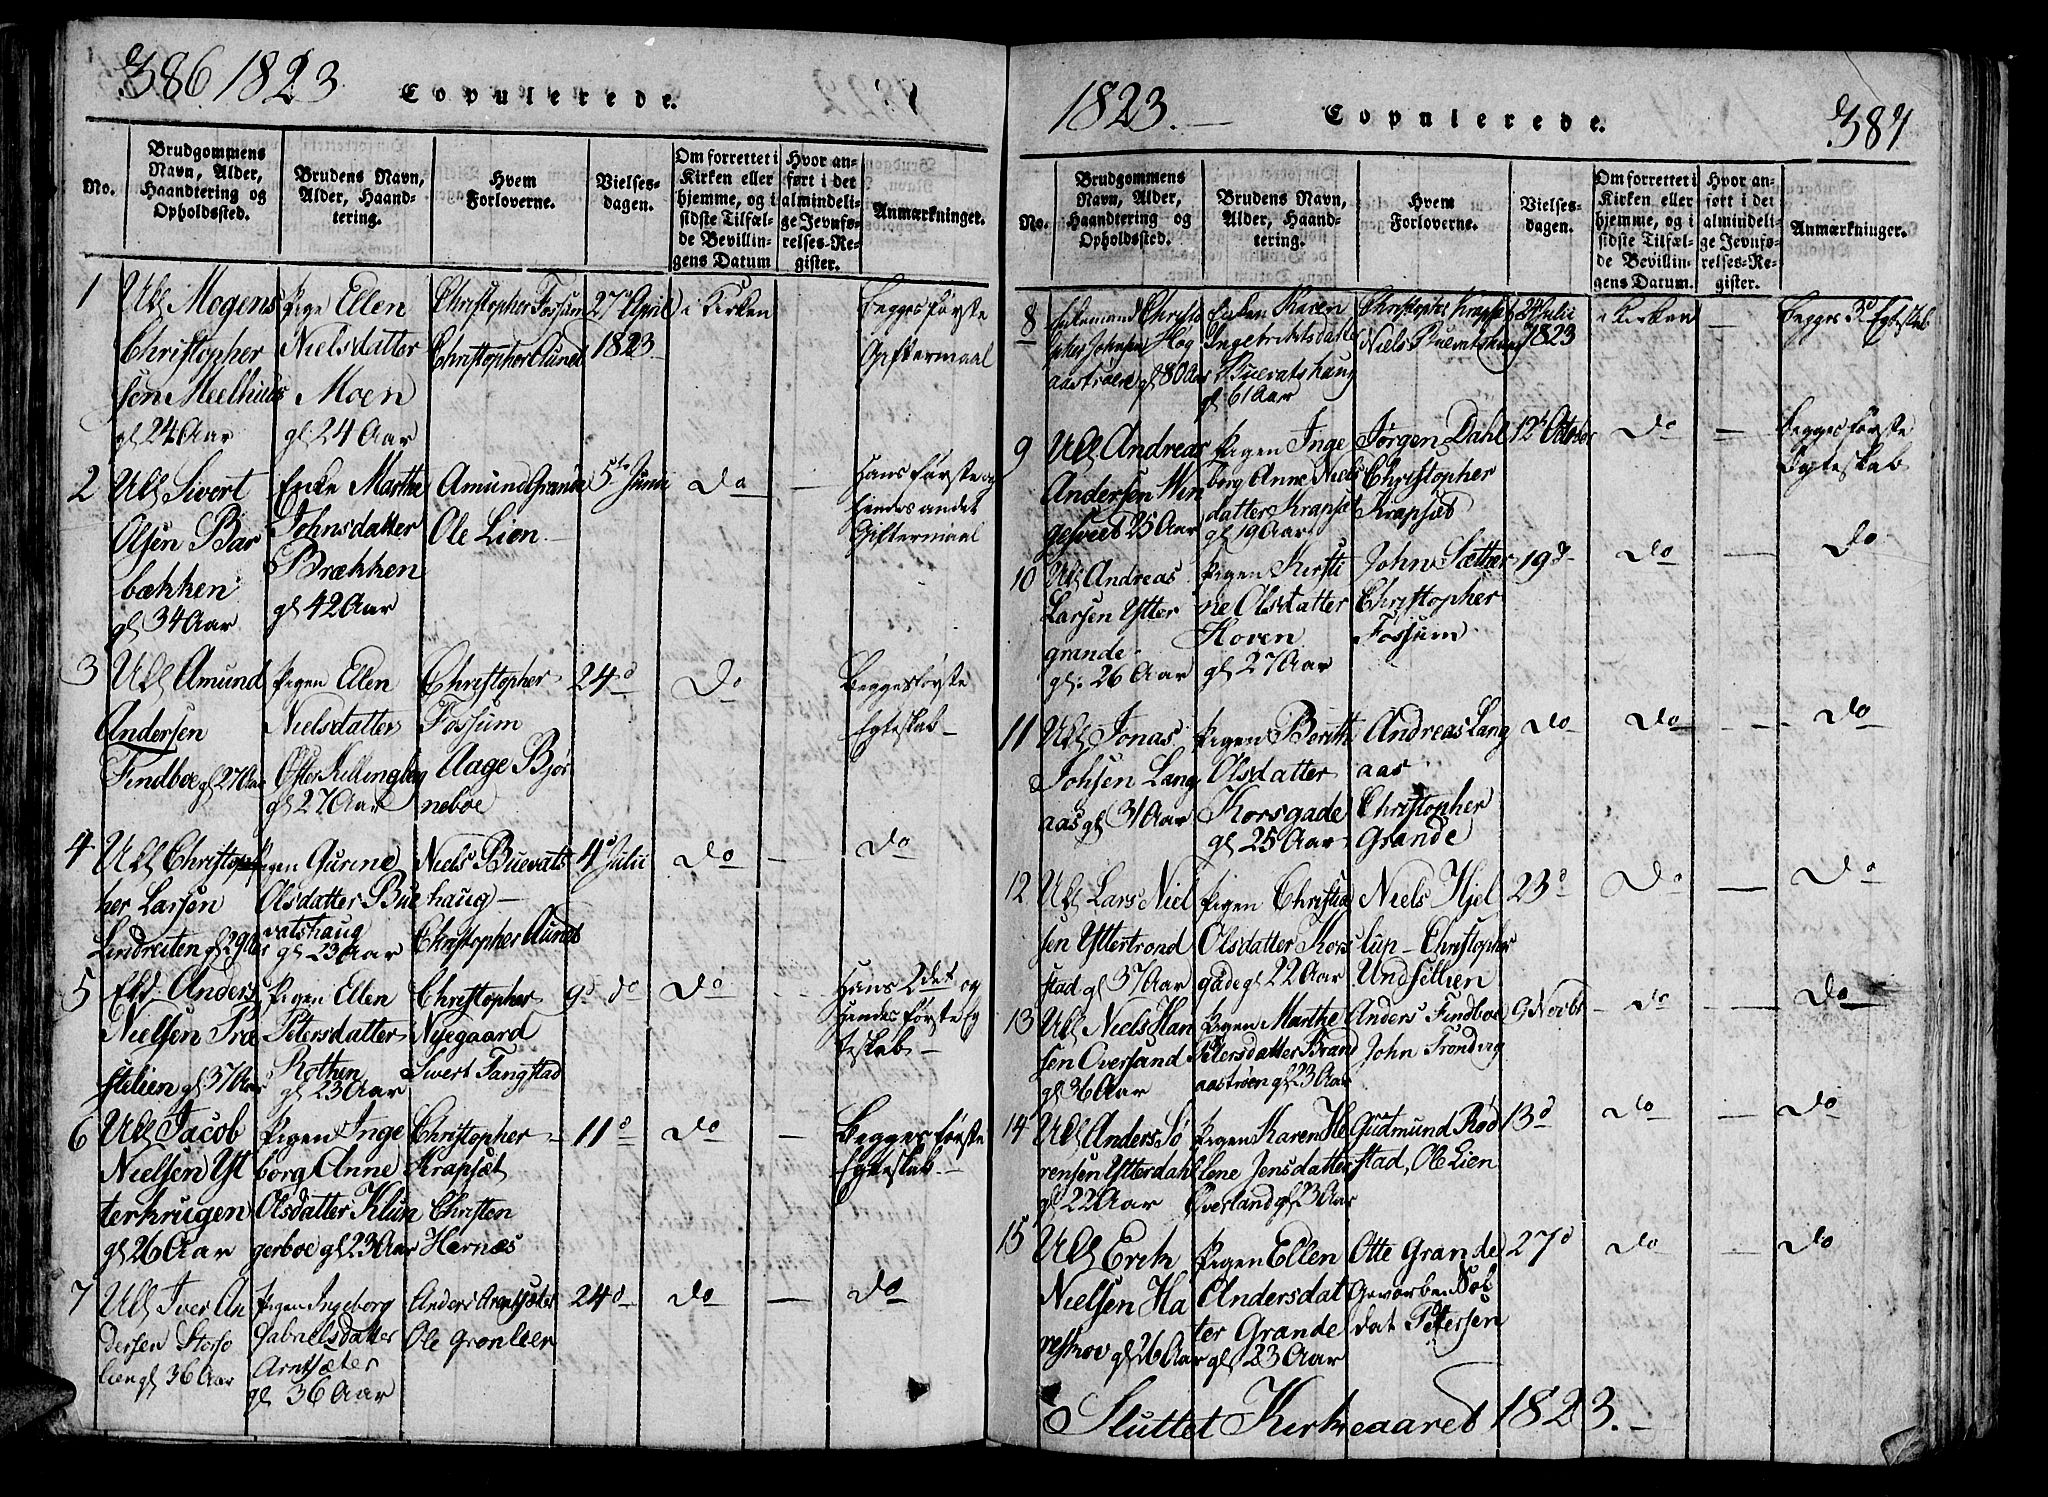 386 1823
Copulerede.
No.
Brudgommens
Navn, Alder,
Haandtering og
Opholdssted.
Brudens Navn,
Alder, Haand-
tering.
Hvem
Forloverne.
Vielses-
dagen.
Om forrettet i
Kirken eller
hjemme, og i
sidste Tilfæl-
de Bevillin-
gens Datum
Hvor an-
ført i det
almindeli-
ge Jevnfø-
relses-Re-
gister.
Anmærkninger.
1
Mogens
Christopher
sen Meelhuus
gl 24 Aar
Pige Ellen
Nielsdatter
Moen
gl 24 Aar
Christopher Fossum
Christopher Aunet
27de April
1823
i Kirken
Begges første
Giftermaal
2
Sivert
Olsen Bar
bækken
gl 34 Aar
Enke Marthe
Johnsdatter
Brækken
gl 42 Aar
Amund Granøe
Ole Lien
5te Junii
Do
Hans første og
hendes andet
Giftermaal
3
Amund
Andersen
Findboe gl 27 Aar
Pigen Ellen
Nielsdatter
Øster Killingberg
gl 27 Aar
Christopher
Fossum
Aage Bjør
neboe
24 d
Do
Begges første
Egteskab
4
Christop
her Larsen
Lindreiten gl 29 Aar
Pigen Gurine
Olsdatter Bue
vatshaug
gl 23 Aar
Niels Buevats
haug
Christopher Aunet
4 d Julii
Do
—
Do
5
Anders
Nielsen Præ
stelien gl 37 Aar
Pigen Ellen
Petersdatter
Rothen
gl 23 Aar
Christopher
Nyegaard
Sivert Tangstad
9 d do
Do
Hans 2det og
hendes første Eg
teskab
6
Jacob
Nielsen Yt
terkrugen
gl 26 Aar
Pigen Inge
borg Anne
Olsdatter Klün
gerboe gl 23 Aar
Christopher
Krapsæt
Christen
Hernæs
11 d
Do
—
Begges første
Egteskab
7
Iver An
dersen Storø
lien gl 36 Aar
Pigen Ingeborg
Gabrielsdatter
Arntsæter
gl 36 Aar
Anders Arntsæter
Ole Grønlien
24 d
Do
—
Do
1823.
Copulerede.
387
No.
Brudgommens
Navn, Alder,
Haandtering og
Opholdssted.
Brudens Navn,
Alder, Haand-
tering.
Hvem
Forloverne.
Vielses-
dagen.
Om forrettet i
Kirken eller
hjemme, og i
sidste Tilfæl-
de Bevillin-
gens Datum.
Hvor an-
ført i det
almindeli-
ge Jevnfø-
relses-Re-
gister.
Anmærkninger.
8
Enkemand Christo
pher Johnsen Hog
aastrøen gl 80 Aar
Enken Karen
Ingebrichtsdatter
Buevatshaug
gl 61 Aar
Christopher Krapsæt
Niels Buevatshaug
24 Julii
1823
i Kirken
—
Begges 3d Egteskab
9
Andreas
Andersen Win
gesveet 25 Aar
Pigen Inge
borg Anne Niels
datter Krapsæt
gl 19 Aar
Jørgen Dahl
Christopher
Krapsæt
12te October
Do
—
Begges første
Egteskab
10
Andreas
Larsen Ytter
grande
gl: 26 Aar
Pigen Kirsti
ne Olsdatter
Hoven
gl 27 Aar
John Sætter
Christopher
Fossum
19 d
Do
—
Do
11
Jonas
Johsen Lang
aas gl 31 Aar
Pigen Berith
Olsdatter
Korsgade
gl 25 Aar
Andreas Lang
aas
Christopher
Grande
Do
Do
—
Do
12
Lars Niel
sen Yttertrond
stad gl 37 Aar
Pigen Christia
Olsdatter Kors
gade gl 22 Aar
Niels Hjel
lup Christopher
Undsetlien
23 d
Do
—
Do
13
Niels Han
sen Oversand
gl 36 Aar
Pigen Marthe
Petersdatter Brand
aastrøen gl 23 Aar
Anders Findboe
John Trondvig
9 Novbr
Do
—
Do
14
Anders Sø
rensen Ytterdahl
gl 22 Aar
Pigen Karen He
lene Jensdatter
Overland gl 23 Aar
Gudmund Rød
stad, Ole Lien
13 d
Do
—
Do
15
Erik
Nielsen Ha
reskov gl 26 Aar
Pigen Ellen
Andersdat
ter Grande
gl 23 Aar
Otte Grande
Gevorben Sol
dat Petersen
27 d
Do
—
Do
Sluttet Kirkeaaret 1823.